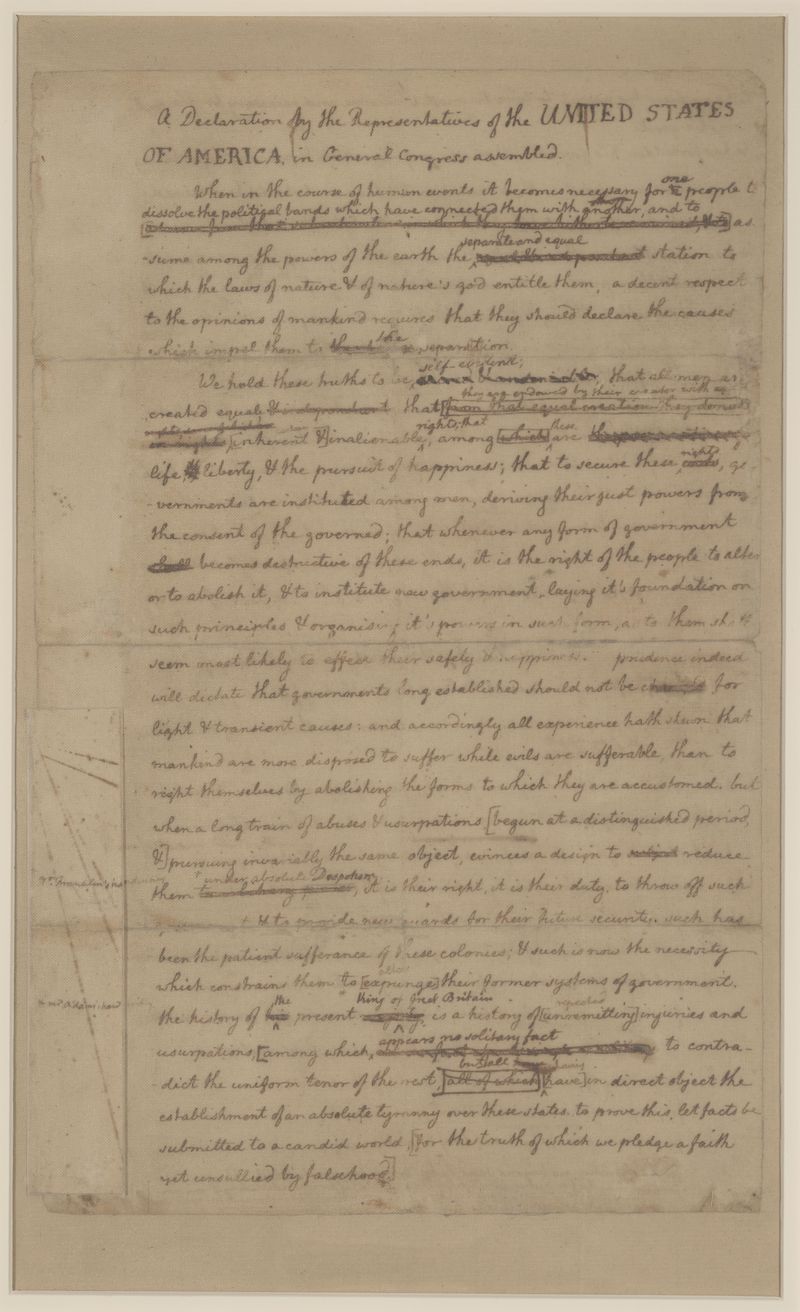 A Declaration by the Representatives of the UNITED STATES
OF AMERICA, in General Congress assembled.
When in the course of human events it becomes necessary for one people to
dissolve the political bands which have connected them with another, and to
as
-sume among the powers of the earth the separate and equal station to
which the laws of nature & of nature's god entitle them, a decent respect
to the opinions of mankind requires that they should declare the causes
which impel them to the separation.
We hold these truths to be self-evident; that all men are
they are endowed by their creator with
created equal & independent that from that equal creation they derive
rights; that these
in rights inherent & inalienable, among which are
life, liberty, & the pursuit of happiness; that to secure these rights, go
-vernments are instituted among men, deriving their just powers from
the consent of the governed; that whenever any form of government
shall becomes destructive of these ends, it is the right of the people to alter
or to abolish it, & to institute new government, laying it's foundation on
such principles & organising it's powers in such form, as to them shall
seem most likely to effect their safety & happiness. prudence indeed
will dictate that governments long established should not be changed for
light & transient causes: and accordingly all experience hath shewn that
mankind are more disposed to suffer while evils are sufferable, than to
right themselves by abolishing the forms to which they are accustomed. but
when a long train of abuses & usurpations [begun at a distinguished period,
&] pursuing invariably the same object, evinces a design to subject reduce
under absolute Despotism
them to arbitrary power, it is their right, it is their duty, to throw off such
& to provide new guards for their future security. such has
been the patient sufferance of these colonies; & such is now the necessity
alter
which constrains them to [expunge] their former systems of government.
the King of Great Britain repeated
the history of his present majesty, is a history of [unremitting] injuries and
appears no solitary fact
usurpations, [among which, to contra-
but all
dict the uniform tenor of the rest, all of which [have] in direct object the
establishment of an absolute tyranny over these states. to prove this, let facts be
submitted to a candid world, [for the truth of which we pledge a faith
yet unsullied by falsehood.]
Dr. Franklin's handwriting
& Mr Adams' hand